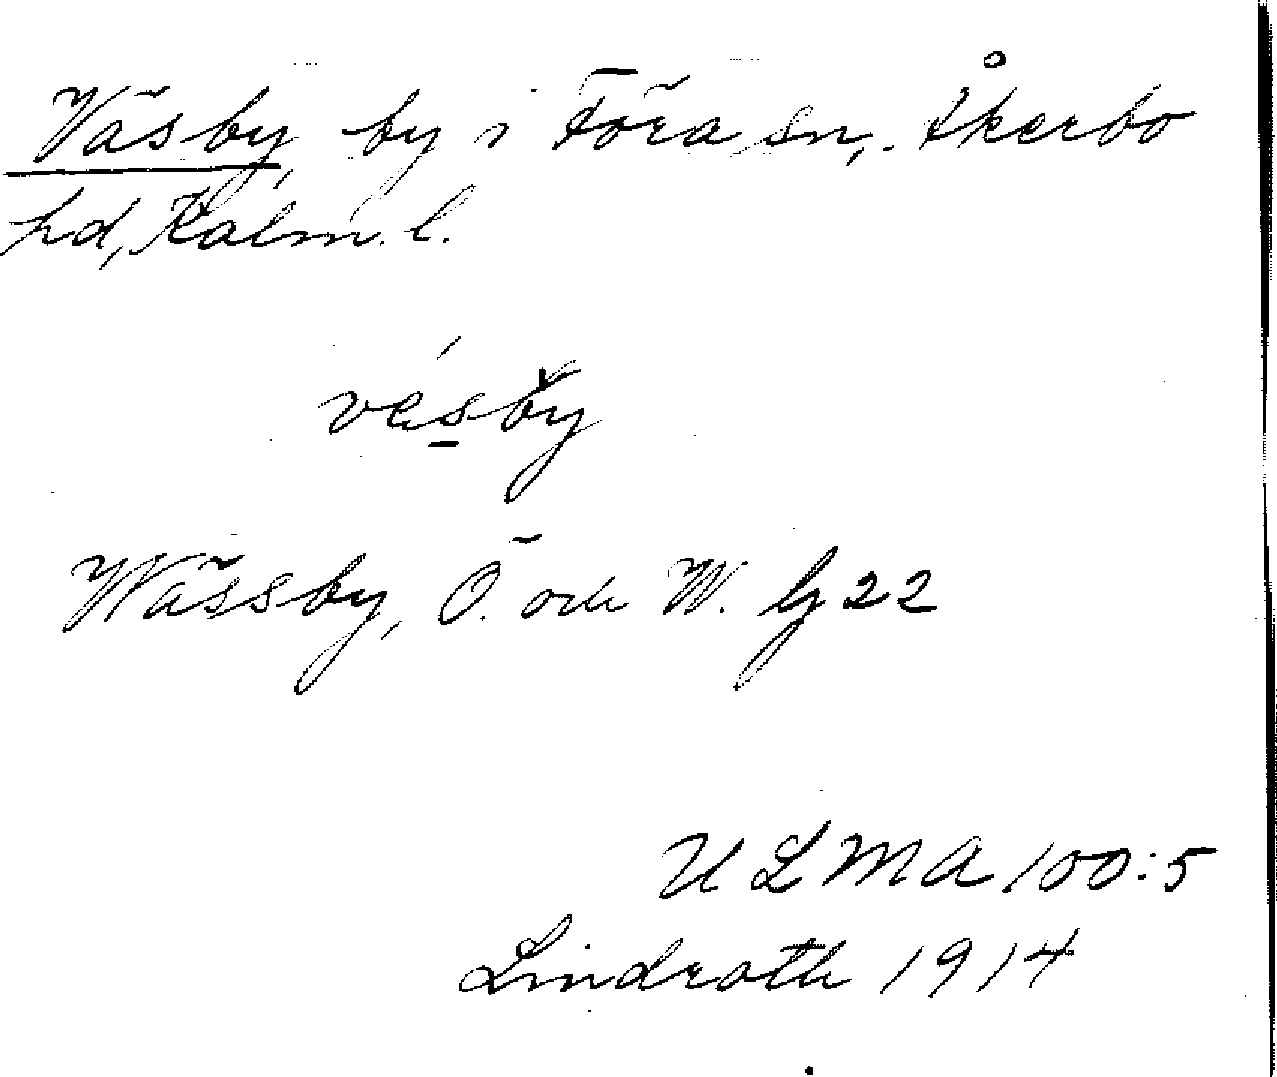 Väsby, by i Föra sn, Åkerbo
hd, Kalm. l.
vésby
Wässby, Ö. och W. G 22
ULMA 100:5
Lindroth 1914